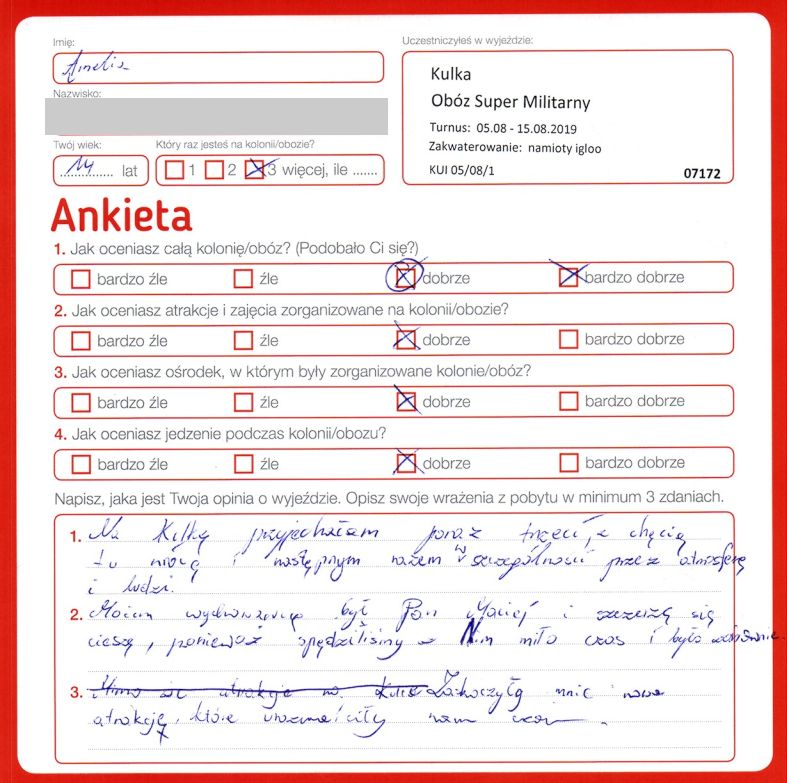 Imię:
Amelia
Nazwisko:
Twój wiek:
14 lat
Który raz jesteś na kolonii/obozie?
1 2 3 więcej, ile .......
Uczestniczyłeś w wyjeździe:
Kulka
Obóz Super Militarny
Turnus: 05.08 - 15.08.2019
Zakwaterowanie: namioty igloo
KUI 05/08/1 07172
Ankieta
1. Jak oceniasz całą kolonię/obóz? (Podobało Ci się?)
bardzo źle źle dobrze bardzo dobrze
2. Jak oceniasz atrakcje i zajęcia zorganizowane na kolonii/obozie?
bardzo źle źle dobrze bardzo dobrze
3. Jak oceniasz ośrodek, w którym były zorganizowane kolonie/obóz?
bardzo źle źle dobrze bardzo dobrze
4. Jak oceniasz jedzenie podczas kolonii/obozu?
bardzo źle źle dobrze bardzo dobrze
Napisz, jaka jest Twoja opinia o wyjeździe. Opisz swoje wrażenia z pobytu w minimum 3 zdaniach.
1. Na Kulkę przyjechałam poraz trzeci, z chęcią
tu wrócę i następnym razem w szczególności przez atmosferę
i ludzi.
2. Moim wychowawcą był Pan Maciej i szczerzę się
cieszę, ponieważ spędziliśmy z Nim miło czas i było
3. Mimo że atrakcje na Kulce Zaskoczyły mnie nowe
atrakcję, które urozmaiciły nam czas.